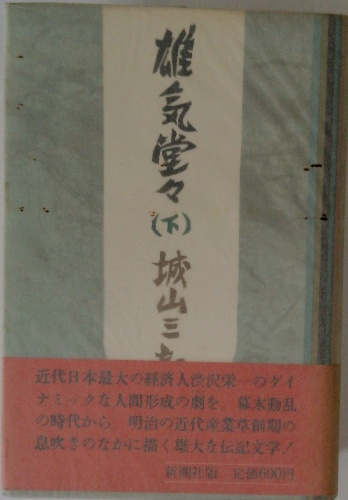 雄気堂々
(下)
城山三
近代日本最大の経済人渋沢栄一のダイ
ナミックな人間形成の劇を、幕末動乱
の時代から、明治の近代産業草創期の
息吹きのなかに描く雄大な伝記文学!
新潮社版 定価690円